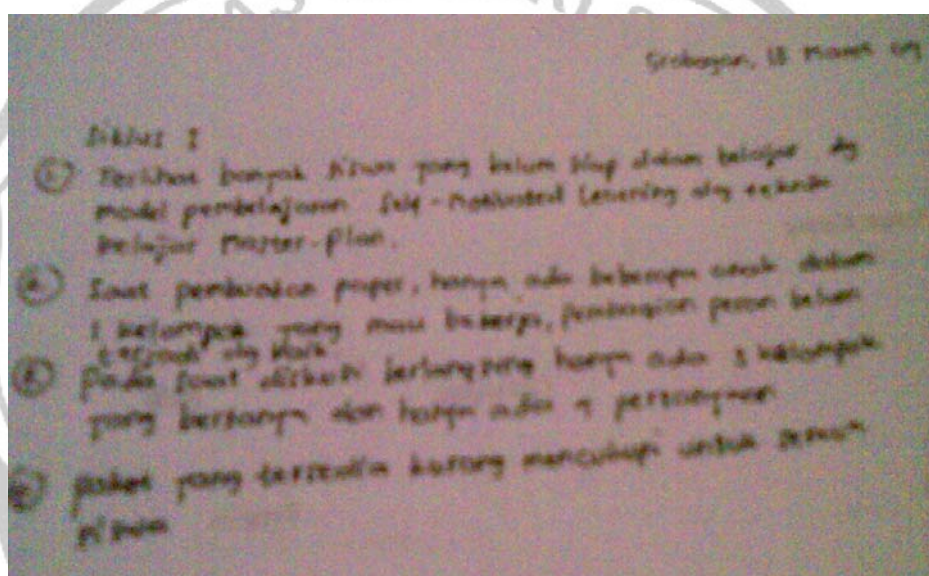 Grobogan, 18 Maret 09
Siklus I
① Terlihat banyak siswa yang belum siap dalam belajar dg
model pembelajaran Self-Motivated Learning dg teknik
belajar Master-Plan.
② Saat pembuatan paper, hanya ada beberapa anak dalam
1 kelompok yang mau bekerja, pembagian peran belum
terjadi dg baik
③ Pada saat diskusi berlangsung hanya ada kelompok
yang bertanya dan hanya ada pertanyaan
paket yang tersedia kurang mencukupi untuk semua
siswa